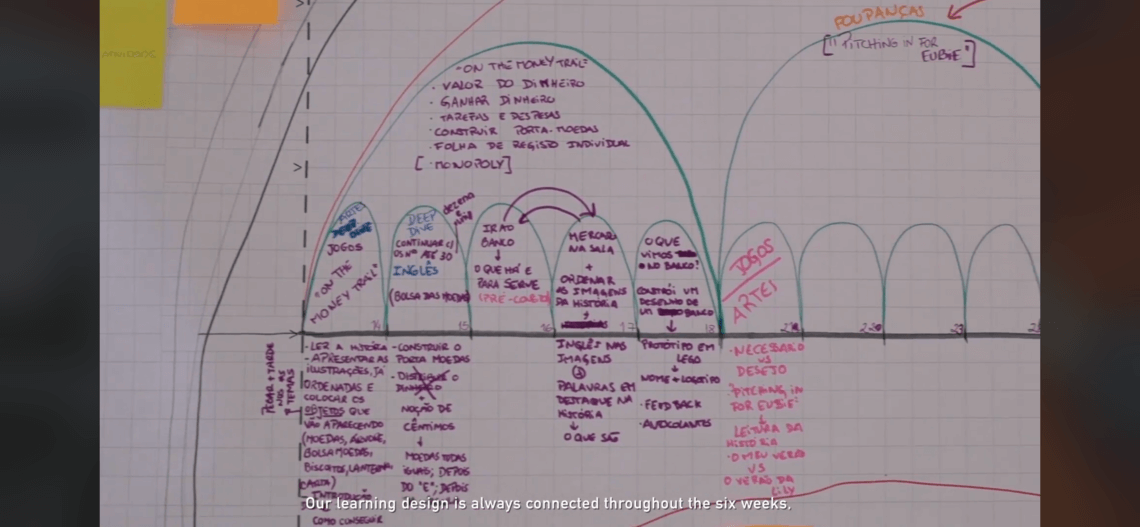 POUPANÇAS
["PITCHING IN FOR
EUBIE"]
"ON THE MONEY TRAIL"
· VALOR DO DINHEIRO
· GANHAR DINHEIRO
· TAREFAS E DESPESAS
· CONSTRUIR PORTA-MOEDAS
· FOLHA DE REGISTO INDIVIDUAL
[·MONOPOLY]
ARTE
JOGOS
"ON THE
MONEY TRAIL"
14
DEEP
DIVE
CONTINUAR C/
OS Nºs ATÉ 30
INGLÊS
(BOLSA DAS MOEDAS)
dezena
15
IR AO
BANCO
↓
O QUE HÁ E
PARA SERVE
16
MERCADO
NA SALA
+
ORDENAR
AS IMAGENS
DA HISTÓRIA
17
O QUE
VIMOS
NO BANCO?
CONSTRÓI UM
DESENHO DE
UM BANCO
18
JOGOS
ARTE
22
23
· LER A HISTÓRIA
- APRESENTAR AS
ILUSTRAÇÕES JÁ
ORDENADAS E
COLOCAR OS
OBJETOS QUE
VÃO APARECENDO
(MOEDAS, ÁRVORE,
BOLSA MOEDAS,
BISCOITOS, LANTERNA
CARTA)
COMO CONSEGUIR
- CONSTRUIR O
PORTA MOEDAS
+
NOÇÃO DE
CÊNTIMOS
↓
MOEDAS TODAS
IGUAIS; DEPOIS
INGLÊS NAS
IMAGENS
PALAVRAS EM
DESTAQUE NA
HISTÓRIA
↓
O QUE SÃO
PROTÓTIPO EM
LEGO
↓
NOME + LOGOTIPO
· FEEDBACK
· AUTOCOLANTES
· NECESSÁRIO
VS
DESEJO
"PITCHING IN
FOR EUBIE"
↓
LEITURA DA
HISTÓRIA
· O MEU VERÃO
VS
O VERÃO DA
LILY
Our learning design is always connected throughout the six weeks,